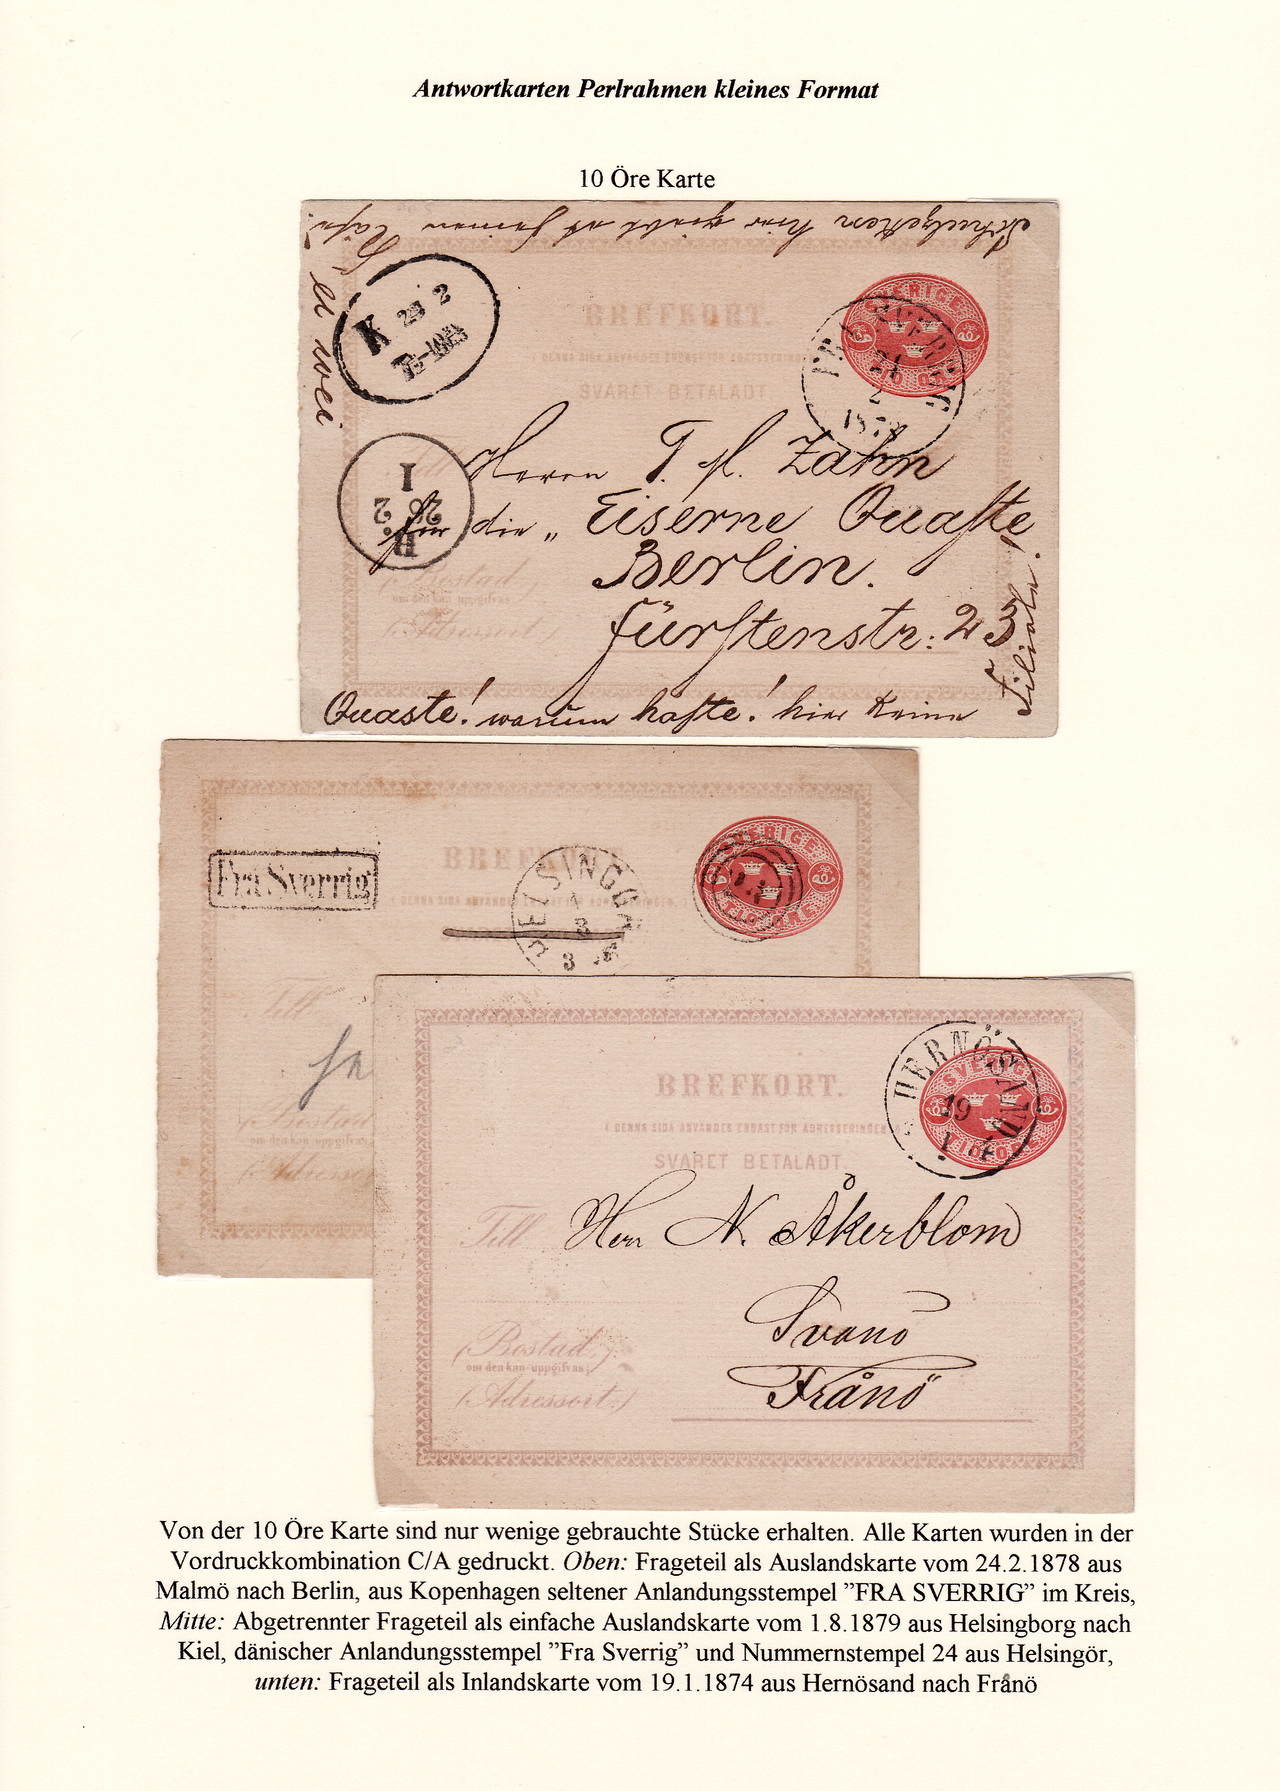 Antwortkarten Perlrahmen kleines Format
10 Öre Karte
K 2
BREFKORT.
( DENNA SIDA ANVÄNDES ENDAST FÖR ADRESSERINGEN
SVARET BETALADT.
SVERIGE
FRA SVERRIG
24
2
I
26 2
B
Herrn T. H. Zahn
für die „ Eiserne Quaste
Berlin.
Fürstenstr: 23
Filiale!
(Bostad
om den kan uppgifvas
(Adressort.)
Quaste! warum haste! hier keine
BREFKORT
( DENNA SIDA ANVÄNDES ENDAST FÖR ADRESSERINGEN. )
SVERIGE
TIO ÖRE
Fra Sverrig
HELSINGBORG
1
8
Till
(Bostad
om den kan uppgifvas
(Adressort
BREFKORT.
( DENNA SIDA ANVÄNDES ENDAST FÖR ADRESSERINGEN
SVARET BETALADT.
SVERIGE
TIO ÖRE
HERNÖSAND
19
1
Till Herr N. Åkerblom
Svanö
(Bostad,)
om den kan uppgifvas;
Frånö
(Adressort.)
Von der 10 Öre Karte sind nur wenige gebrauchte Stücke erhalten. Alle Karten wurden in der
Vordruckkombination C/A gedruckt. Oben: Frageteil als Auslandskarte vom 24.2.1878 aus
Malmö nach Berlin, aus Kopenhagen seltener Anlandungsstempel ”FRA SVERRIG” im Kreis,
Mitte: Abgetrennter Frageteil als einfache Auslandskarte vom 1.8.1879 aus Helsingborg nach
Kiel, dänischer Anlandungsstempel ”Fra Sverrig” und Nummernstempel 24 aus Helsingör,
unten: Frageteil als Inlandskarte vom 19.1.1874 aus Hernösand nach Frånö